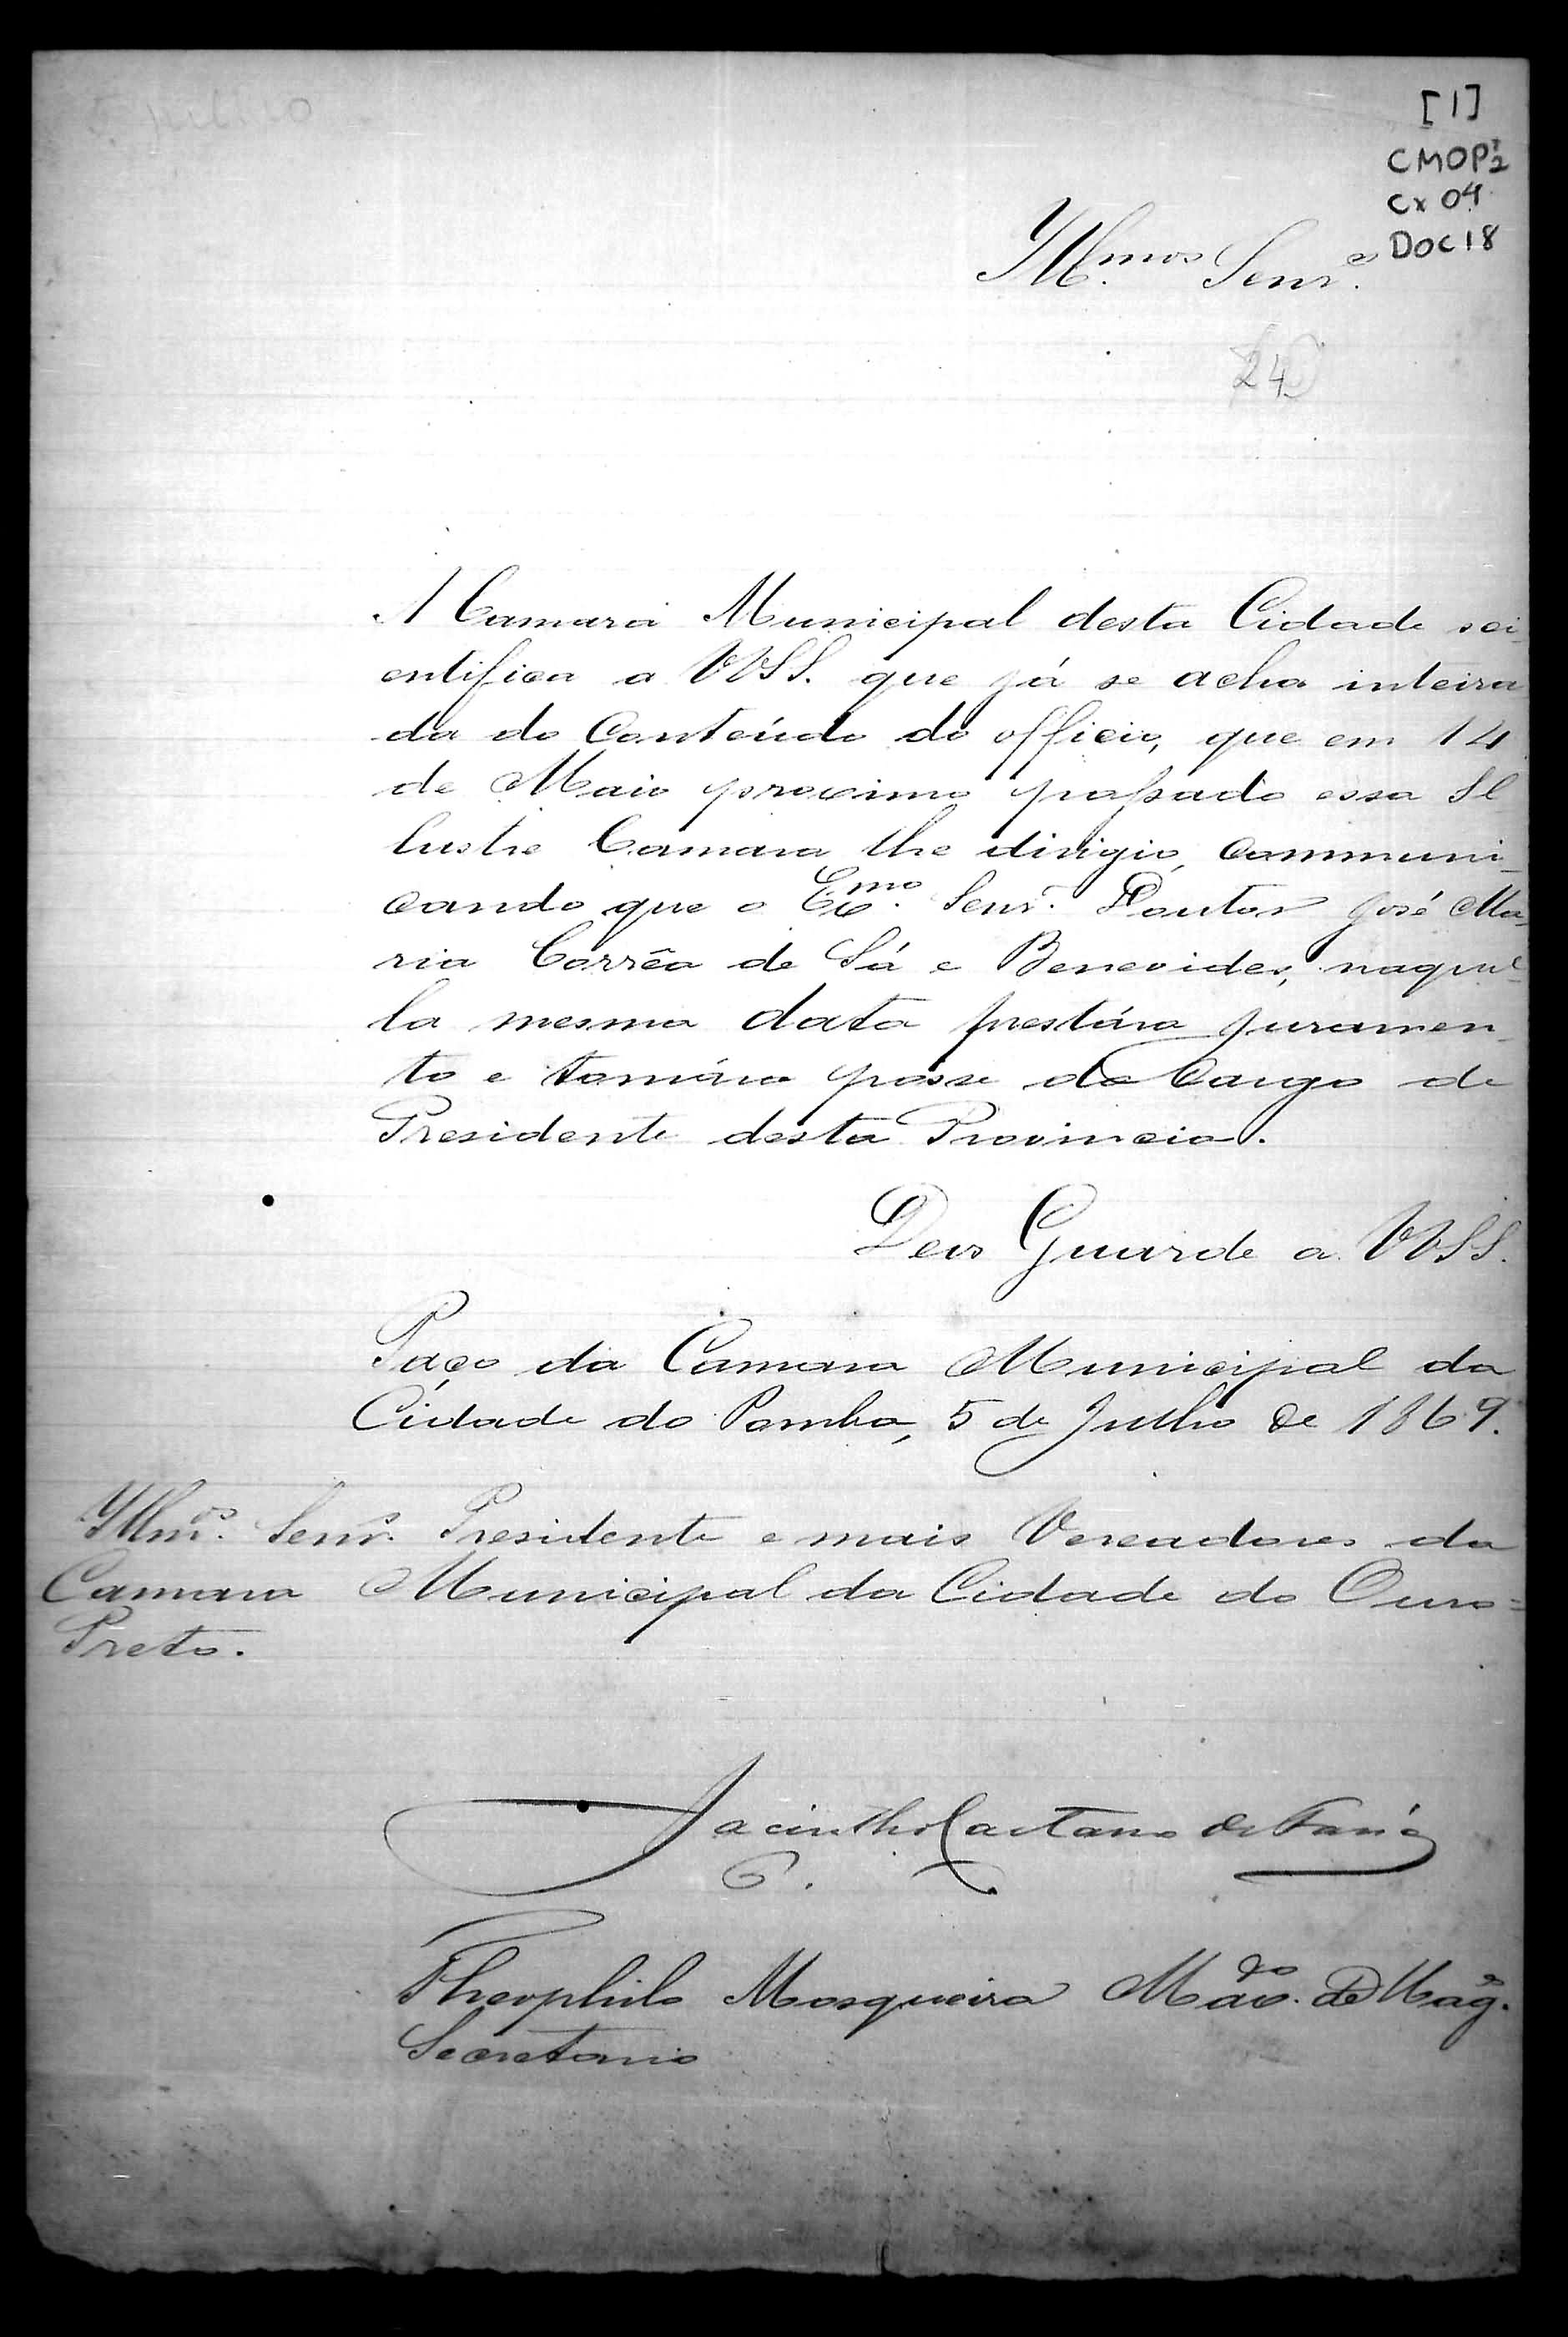 [1]
CMOP 2
Cx 04
DOC 18
Illmos Senres
24
A Camara Municipal desta Cidade sci
entifica a VVSS. que já se acha inteira
da do Conteúdo do officio, que em 14
de Maio proximo passado essa Il
lustre Camara lhe dirigio, communi_
cando que o Exmo. Senr. Doutor José Ma_
ria Corrêa de Sá e Benevides, naquel
la mesma data prestára juramen_
to e tomára posse do Cargo de
Presidente desta Provincia.
Deus Guarde a VVSS.
Paço da Camara Municipal da
Cidade do Pomba, 5 de Julho de 1869.
Illmos. Senrs. Presidente e mais Vereadores da
Camara Municipal da Cidade do Ouro=
Preto.
Jacintho Caetano de Faria
P.
Theophilo Mosqueira de
Secretario